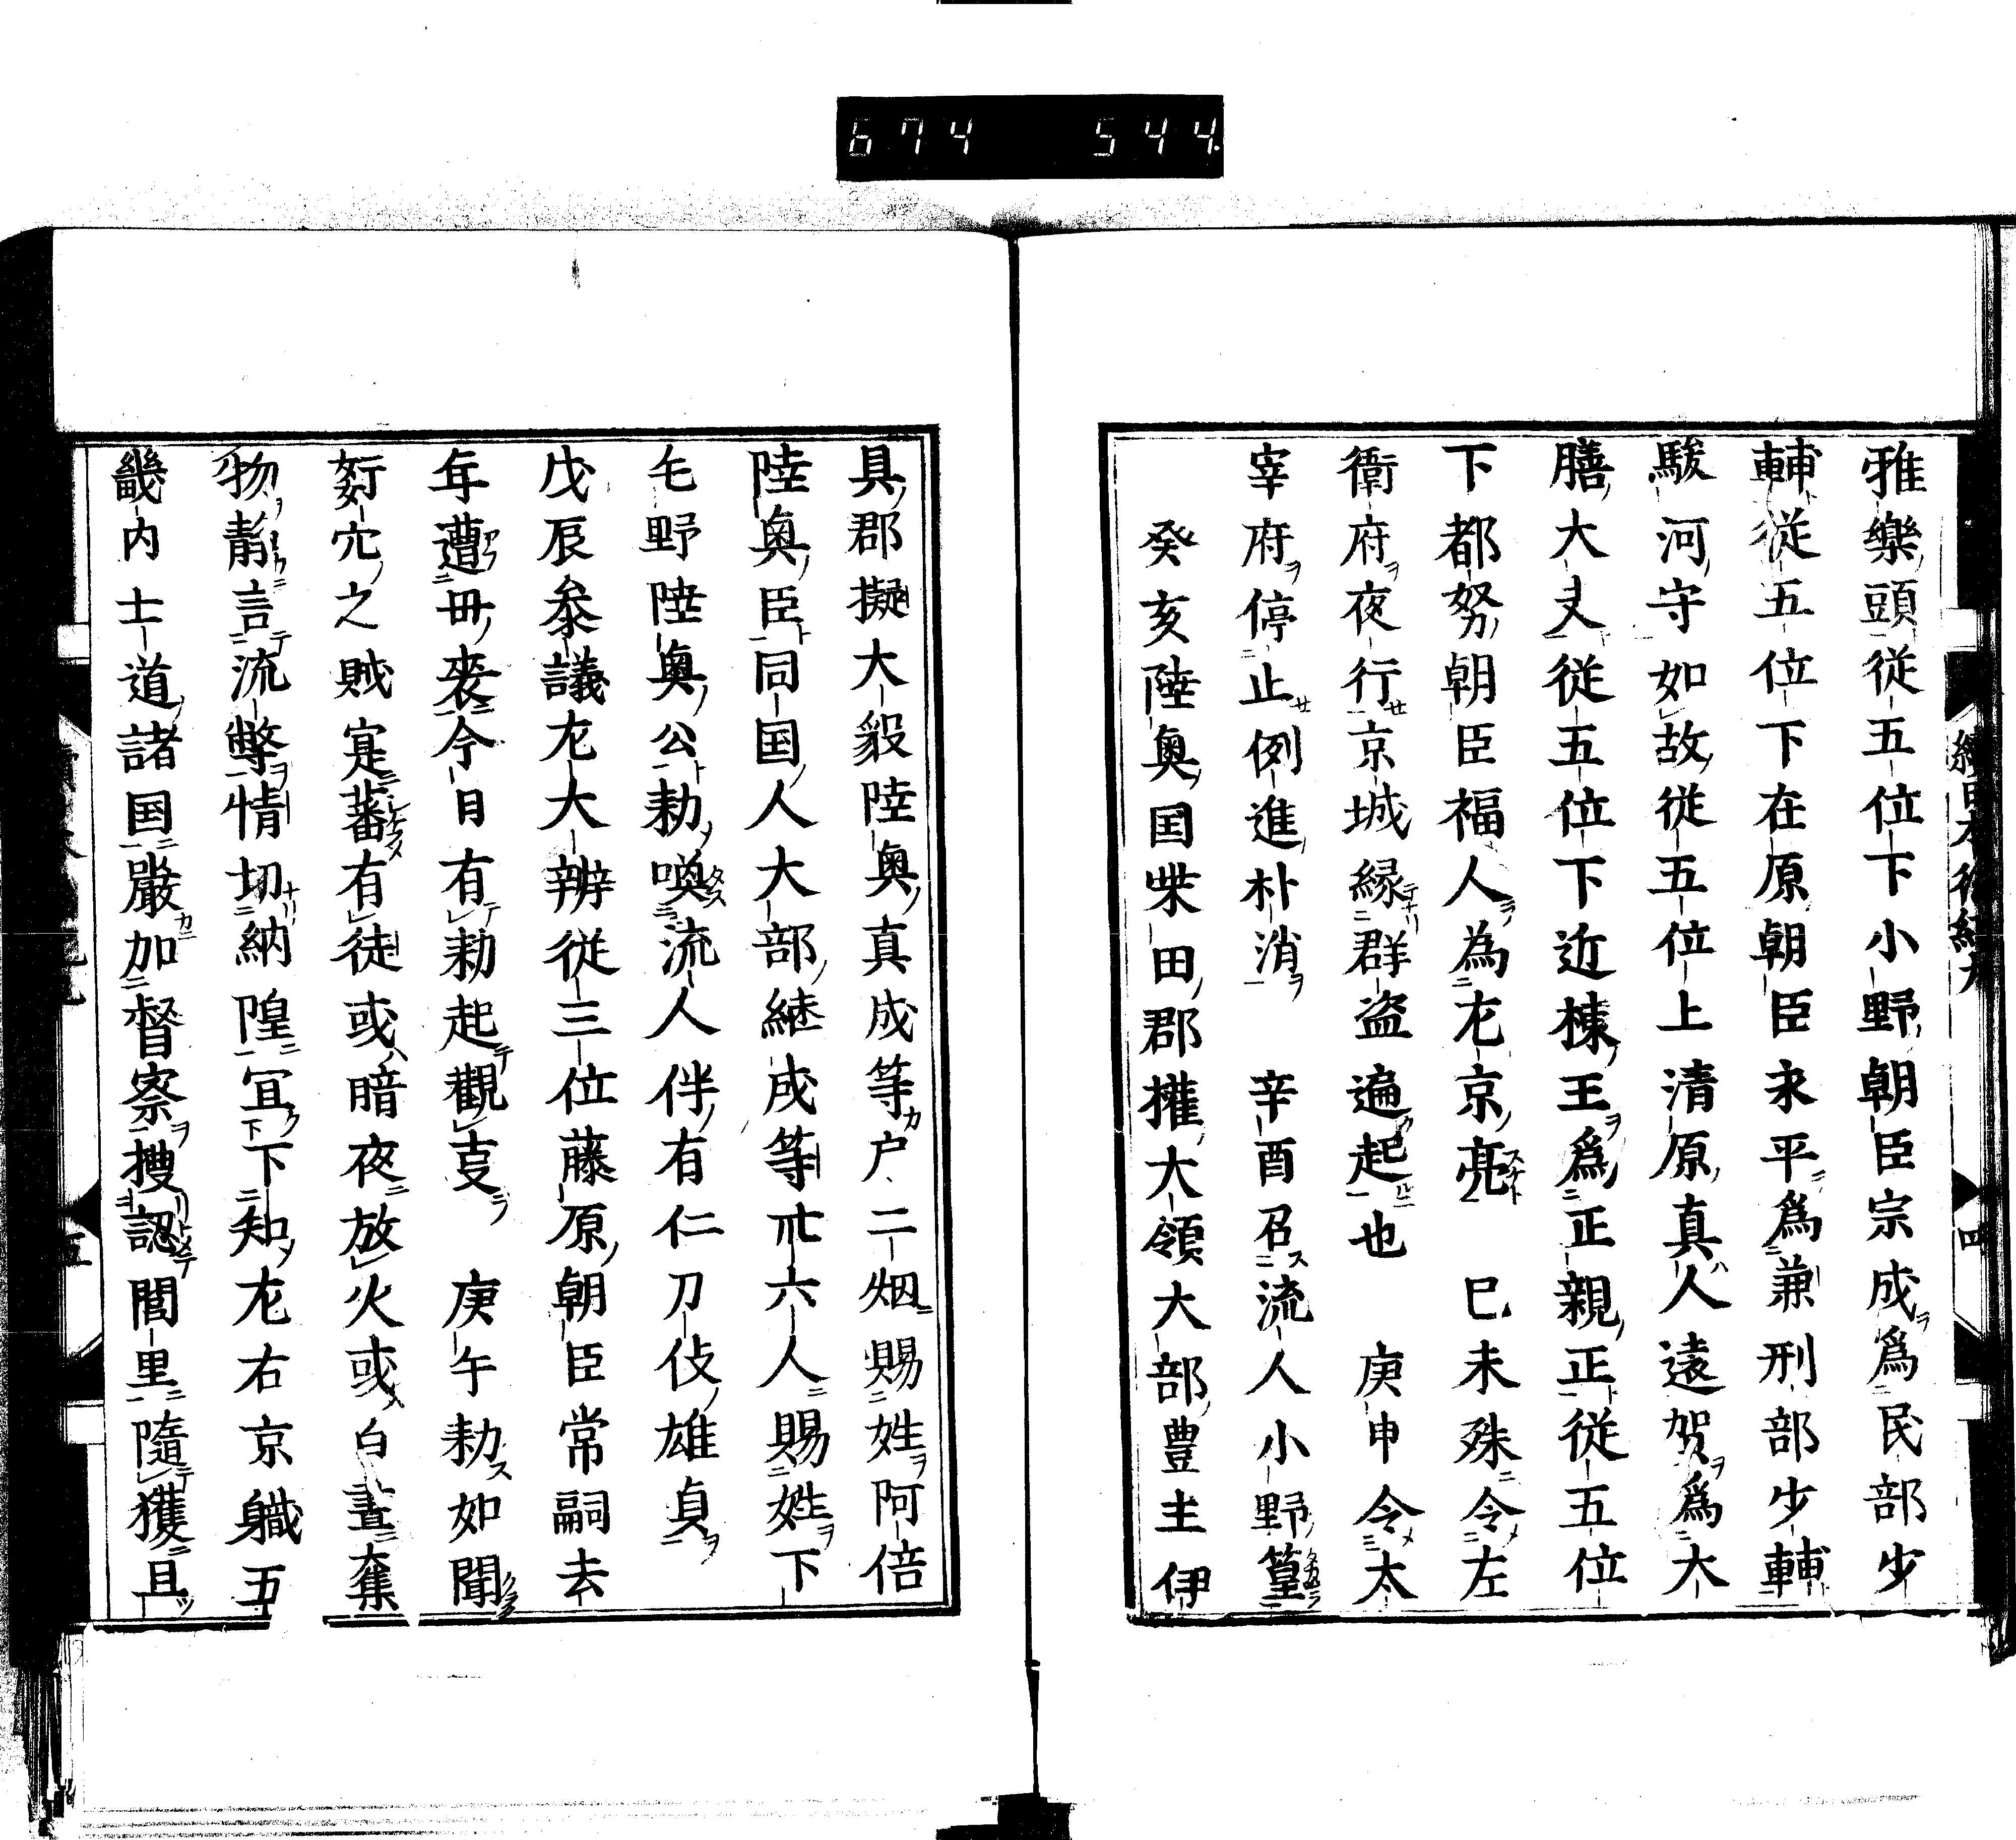 674 544.
雅樂頭從五位下小野朝臣宗成爲民部少
輔従五位下在原朝臣永平爲兼刑部少輔
駿河守如故從五位上清原真人遠賀爲大
膳大夫從五位下近棟王爲正親正從五位
下都努朝臣福人為左京亮 巳未殊令左
衛府夜行京城縁群盗遍起也 庚申令太
宰府停止例進朴消 辛酉召流人小野篁
癸亥陸奥国柴田郡擢大領大部豊主伊
具郡擬大毅陸奥真成等户二烟賜姓阿倍
陸奥臣同国人大部継成等卅六人賜姓下
毛野陸奥公勅喚流人伴有仁刀伎雄貞
戊辰参議左大辨従三位藤原朝臣常嗣去
年遭毋喪今日有勅起觀㐂 庚午勅如聞
姧宄之賊寔蕃有徒或暗夜放火或白晝奪
物靜言流弊情切納隍宜下知左右京職五
畿内七道諸国嚴加督察搜認閭里隨獲且
四
五